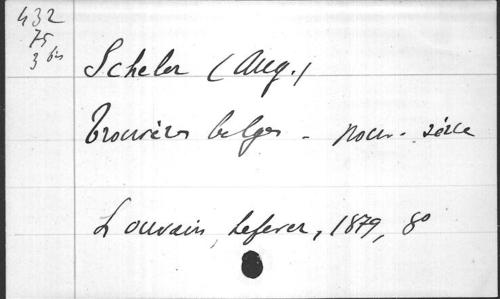 432
75
3 bis
Scheler (Aug.)
Trouvères belges - nouv. série
Louvain, Lefever, 1879, 8°